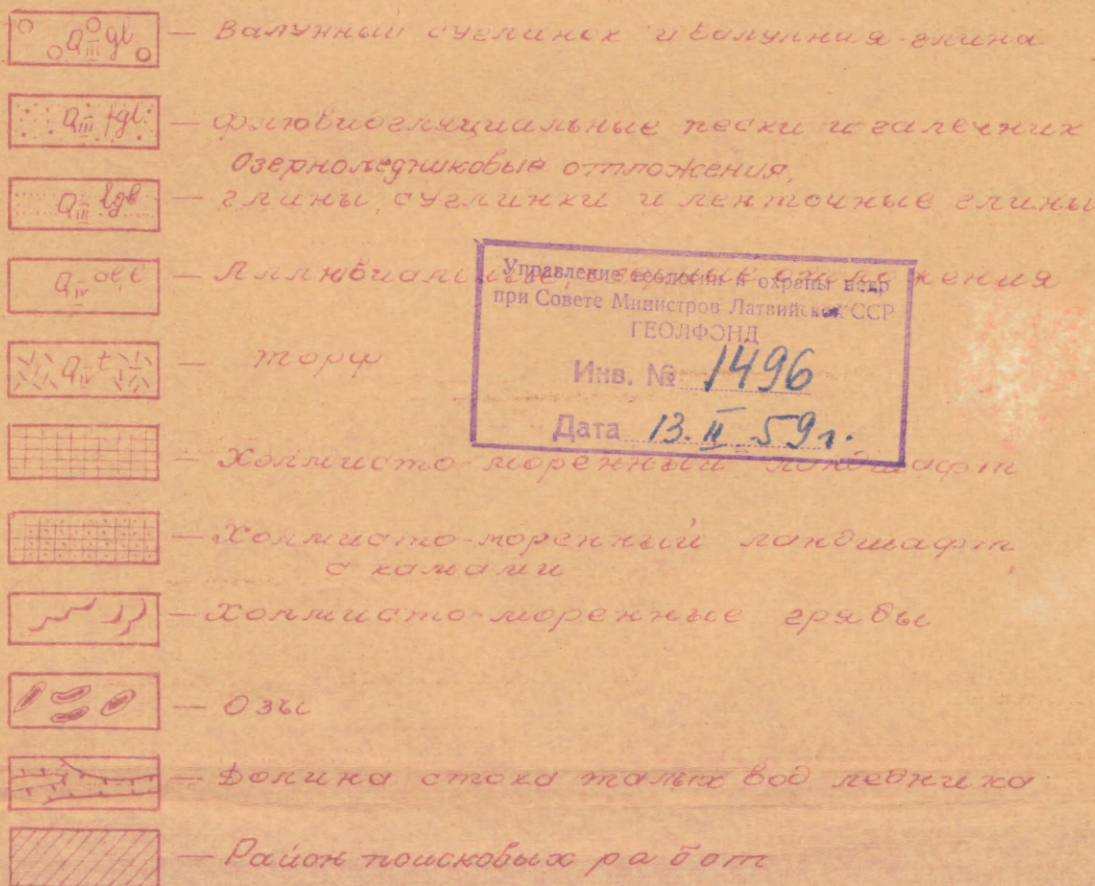 Q III gl — Валунный суглинок и валунная глина
Q III fgl — флювиогляциальные пески и галечник
Озерноледниковые отложения,
Q III lgl — глины, суглинки и ленточные глины
Q IV al, l — Аллювиальные, озерные отложения
Q IV t — торф
— Холмисто-моренный ландшафт
— Холмисто-моренный ландшафт
с камами
— Холмисто-моренные гряды
— Озы
— Долина стока талых вод ледника
— Район поисковых работ
Управление геологии и охраны недр
при Совете Министров Латвийской ССР
ГЕОЛФОНД
Инв. № 1496
Дата 13. II 59 г.